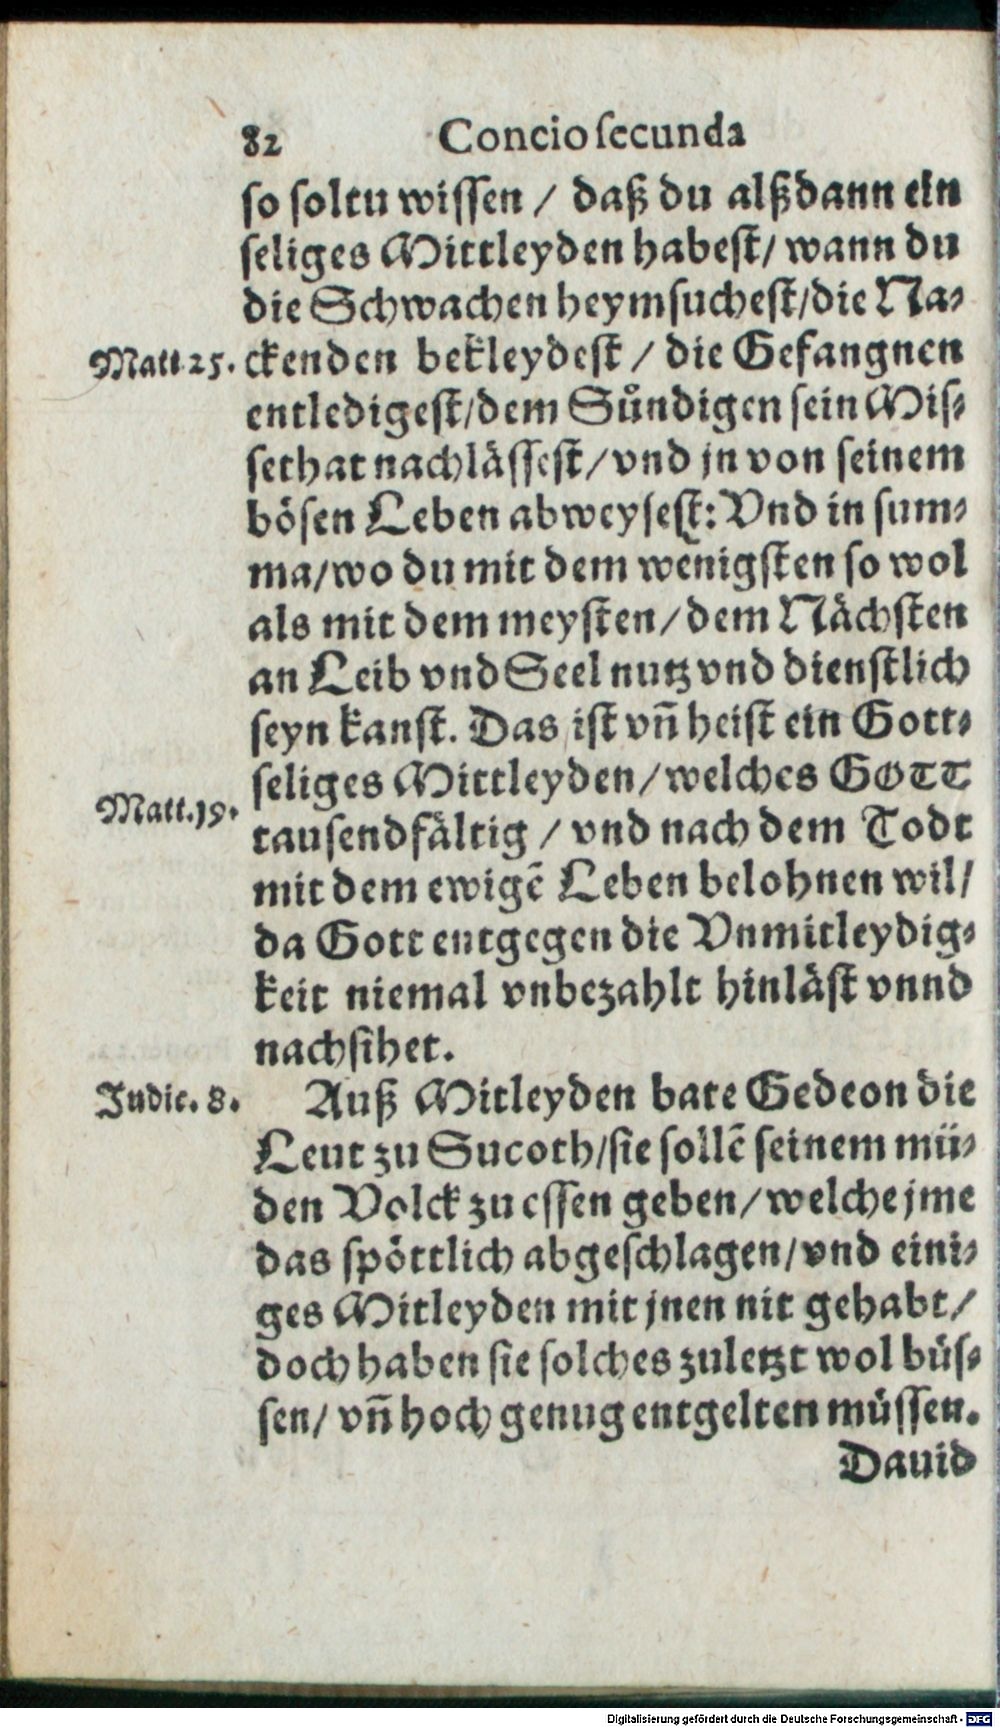 82 Concio secunda
so soltu wissen / daß du alßdann ein
seliges Mittleyden habest / wann du
die Schwachen heymsuchest / die Na-
Matt. 25. ckenden bekleydest / die Gefangnen
entledigest / dem Sündigen sein Mis-
sethat nachlässest / vnd jn von seinem
bösen Leben abweysest: Vnd in sum-
ma / wo du mit dem wenigsten so wol
als mit dem meysten / dem Nächsten
an Leib vnd Seel nutz vnd dienstlich
seyn kanst. Das ist vñ heist ein Gott-
seliges Mittleyden / welches GOTT
Matt. 19. tausendfältig / vnd nach dem Todt
mit dem ewigē Leben belohnen wil /
da Gott entgegen die Vnmitleydig-
keit niemal vnbezahlt hinläst vnnd
nachsihet.
Judic. 8. Auß Mitleyden bate Gedeon die
Leut zu Sucoth / sie sollē seinem mü-
den Volck zu essen geben / welche jme
das spöttlich abgeschlagen / vnd eini-
ges Mitleyden mit jnen nit gehabt /
doch haben sie solches zuletzt wol büs-
sen / vñ hoch genug entgelten müssen.
Dauid
Digitalisierung gefördert durch die Deutsche Forschungsgemeinschaft - DFG